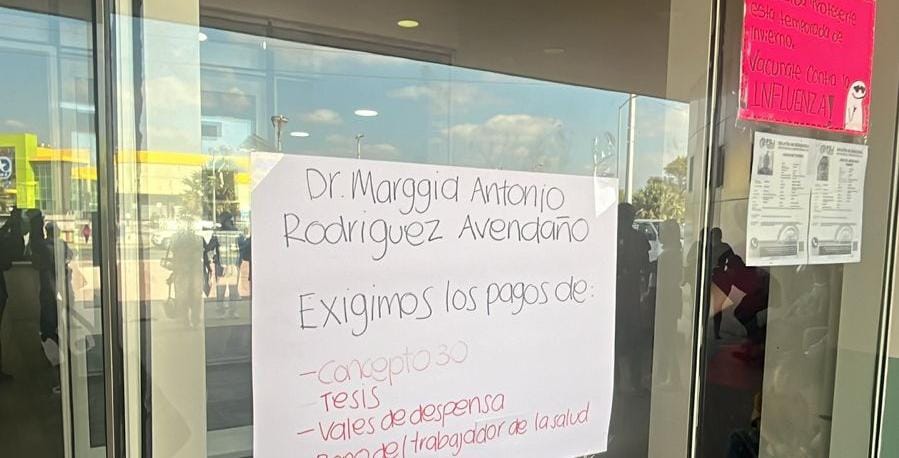 Dr. Marggid Antonio
Rodriguez Avendaño
Exigimos los pagos de:
- Concepto 30
Tesis
- Vales de despensa
del trabajador de la salud
esta temporada de
invierno.
Vacunate contra la
INFLUENZA!